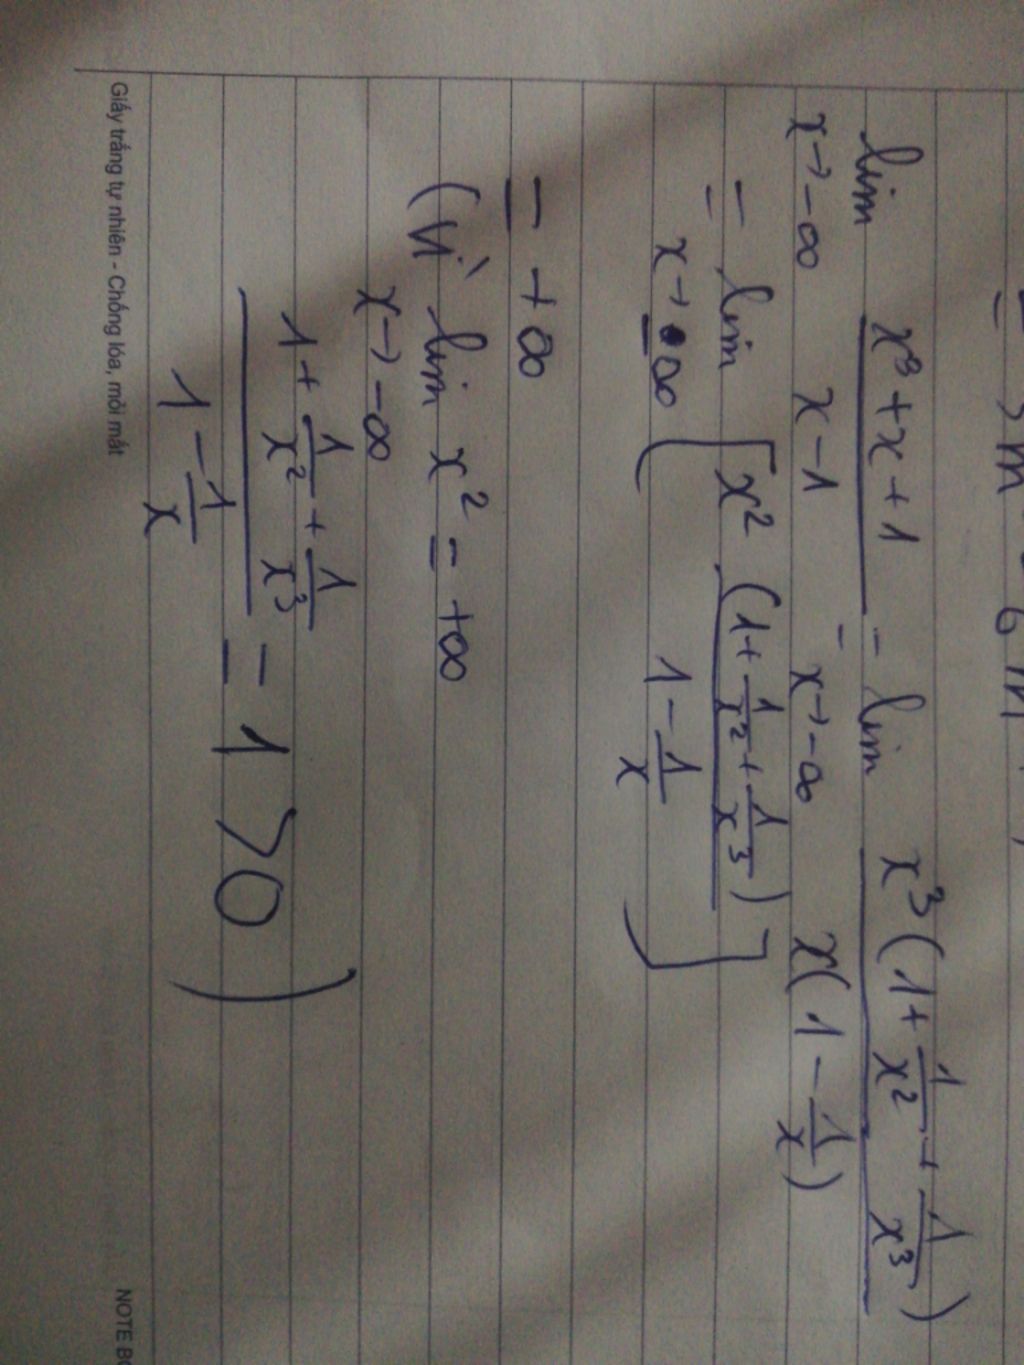 lim x³ + x + 1 = lim x³(1 + 1/x² + 1/x³)
x→-∞ x - 1 x→-∞ x(1 - 1/x)
= lim [x² (1 + 1/x² + 1/x³)
x→-∞ 1 - 1/x ]
= +∞
(Vì lim x² = +∞
x→-∞
1 + 1/x² + 1/x³
1 - 1/x = 1 > 0)
Giấy trắng tự nhiên - Chống lóa, mỏi mắt
NOTE